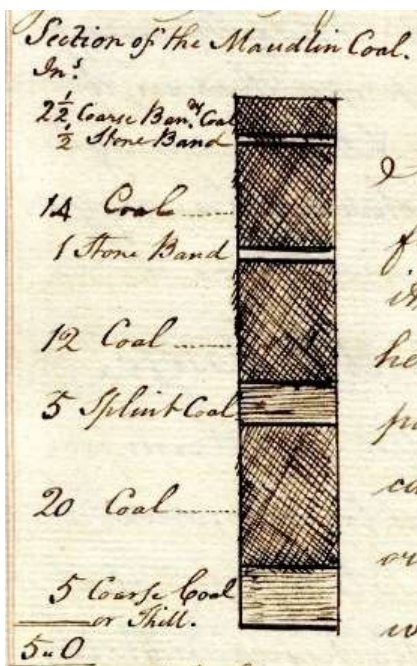 Section of the Maudlin Coal.
In.s
2½ Coarse Ban.dy Coal
½ Stone Band
14 Coal
1 Stone Band
12 Coal
5 Splint Coal
20 Coal
5 Coarse Coal
or Thill.
5„0